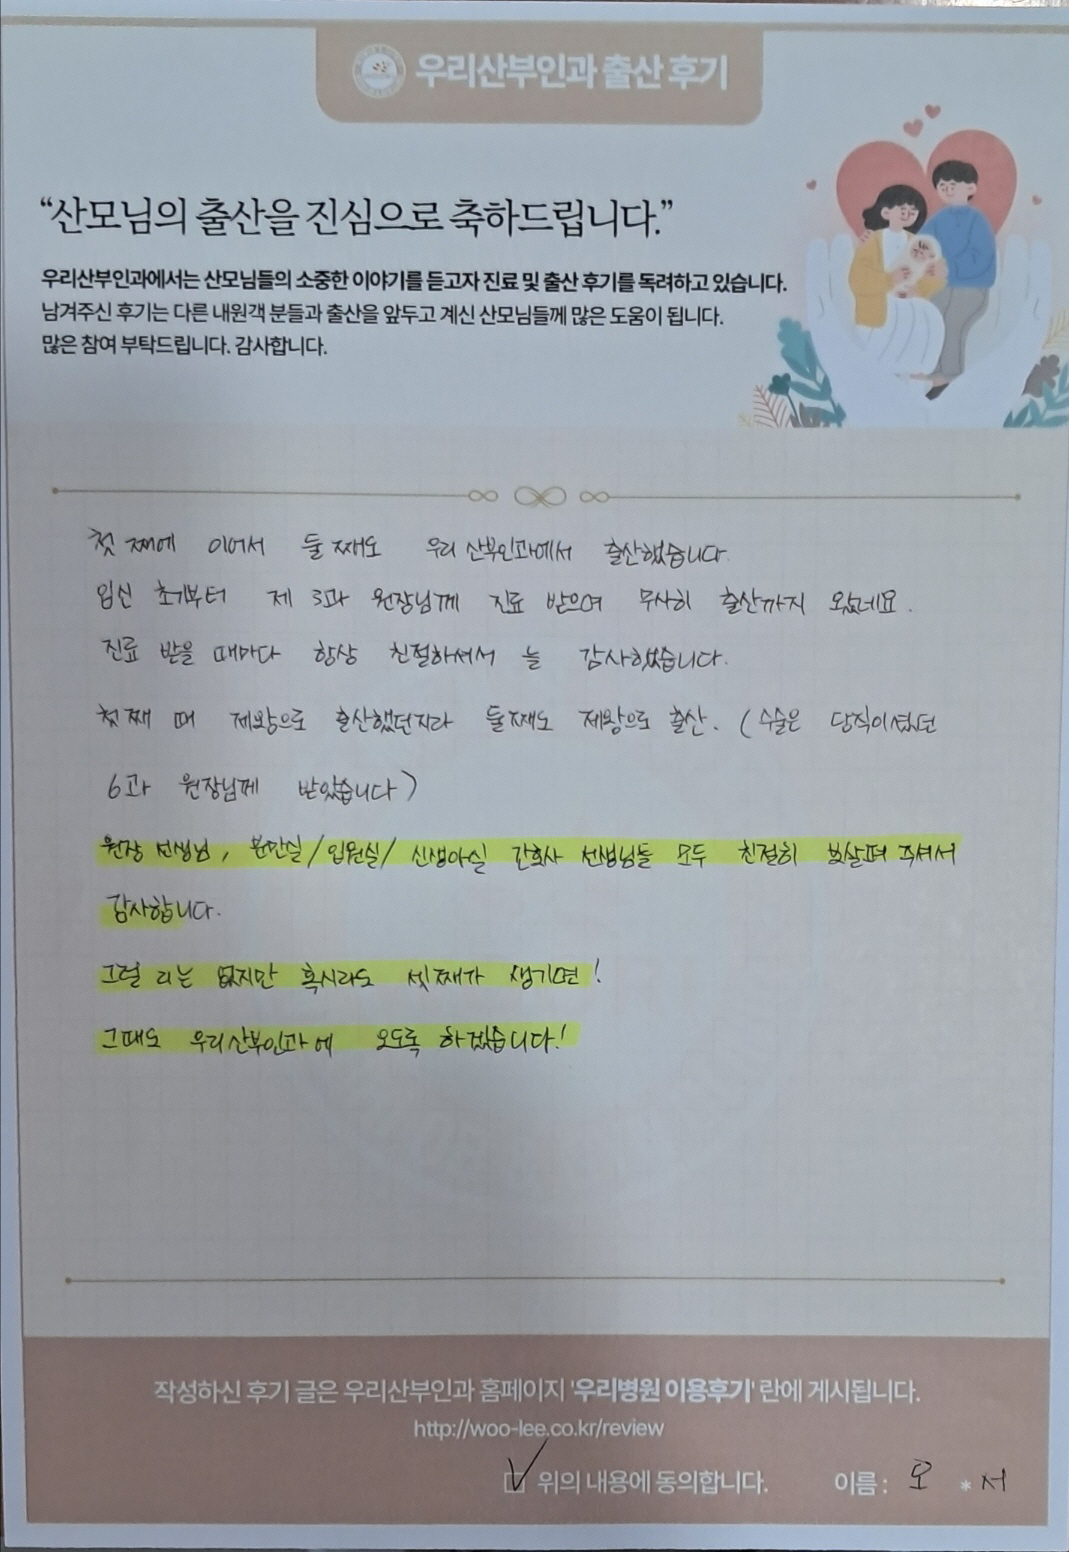 우리산부인과 출산 후기
“산모님의 출산을 진심으로 축하드립니다.”
우리산부인과에서는 산모님들의 소중한 이야기를 듣고자 진료 및 출산 후기를 독려하고 있습니다.
남겨주신 후기는 다른 내원객 분들과 출산을 앞두고 계신 산모님들께 많은 도움이 됩니다.
많은 참여 부탁드립니다. 감사합니다.
첫째에 이어서 둘째도 우리산부인과에서 출산했습니다.
임신 초기부터 제 3과 원장님께 진료 받으며 무사히 출산까지 왔네요.
진료 받을 때마다 항상 친절하셔서 늘 감사했습니다.
첫째 때 제왕으로 출산했던지라 둘째도 제왕으로 출산. (수술은 당직이셨던
6과 원장님께 받았습니다)
원장 선생님, 분만실/입원실/신생아실 간호사 선생님들 모두 친절히 보살펴 주셔서
감사합니다.
그럴 리는 없지만 혹시라도 셋째가 생기면!
그때도 우리산부인과에 오도록 하겠습니다!
작성하신 후기 글은 우리산부인과 홈페이지 '우리병원 이용후기' 란에 게시됩니다.
http://woo-lee.co.kr/review
위의 내용에 동의합니다. 이름 : 오 * 서